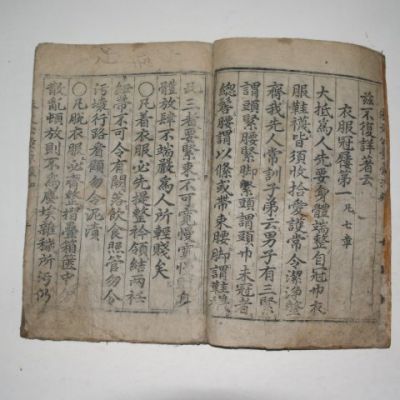 茲不復詳著云
衣服冠屨第一 凡七章
大抵爲人先要身體端整自冠巾衣
服鞋襪皆須收拾愛護常令潔淨整
齊我先人常訓子弟云男子有三緊
謂頭緊腰緊脚緊頭謂頭巾未冠者
總髻腰謂以絛或帶束腰脚謂鞋襪
此三者要緊束不可寬慢寬慢則身
體放肆不端嚴爲人所輕賤矣
○凡着衣服必先提整衿領結兩衽
紐帶不可令有闕落飲食照管勿令
污壞行路看顧勿令泥漬
○凡脫衣服必齊整摺疊箱篋中勿
散亂頓放則不爲塵埃雜穢所污仍